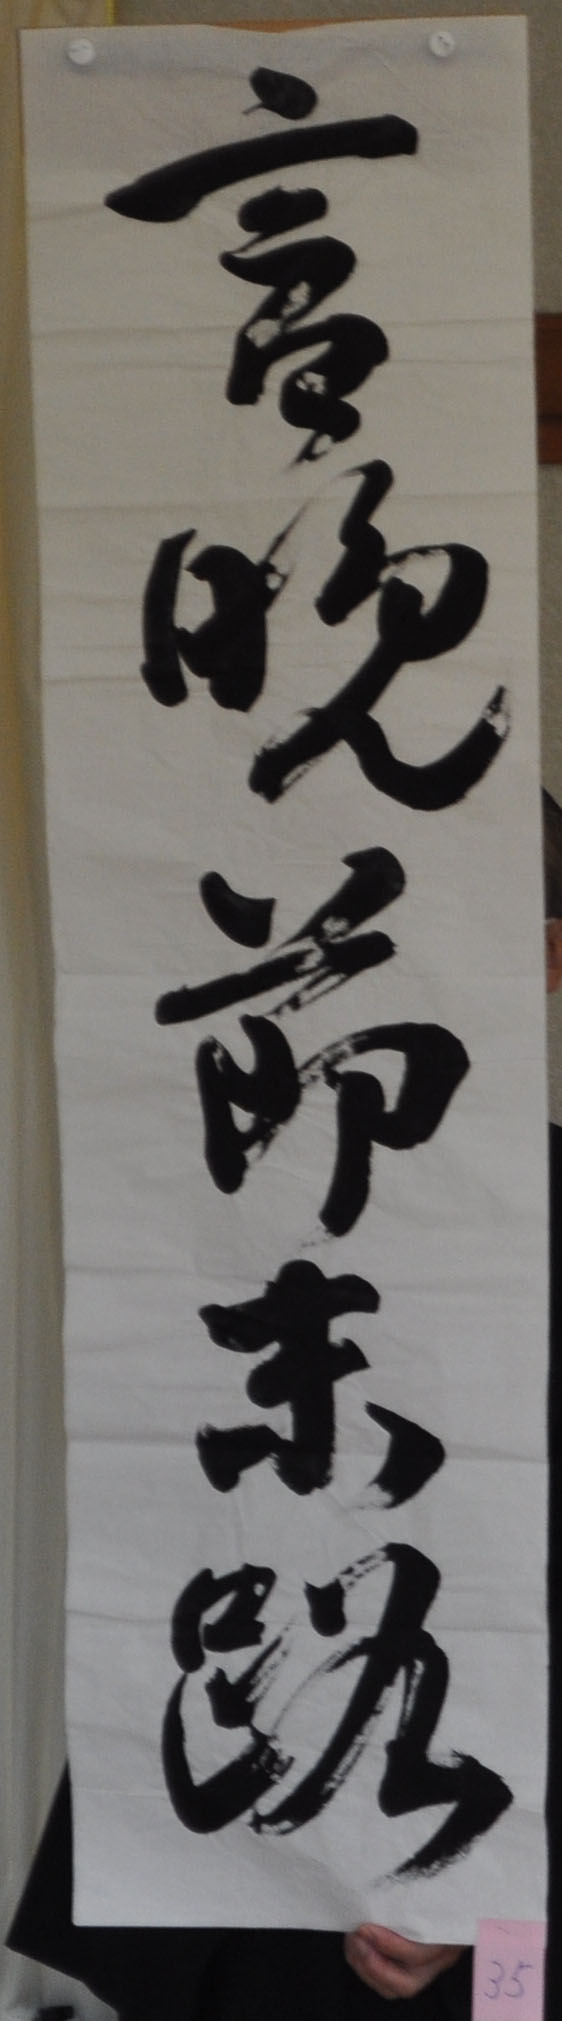 言晩節末路
35